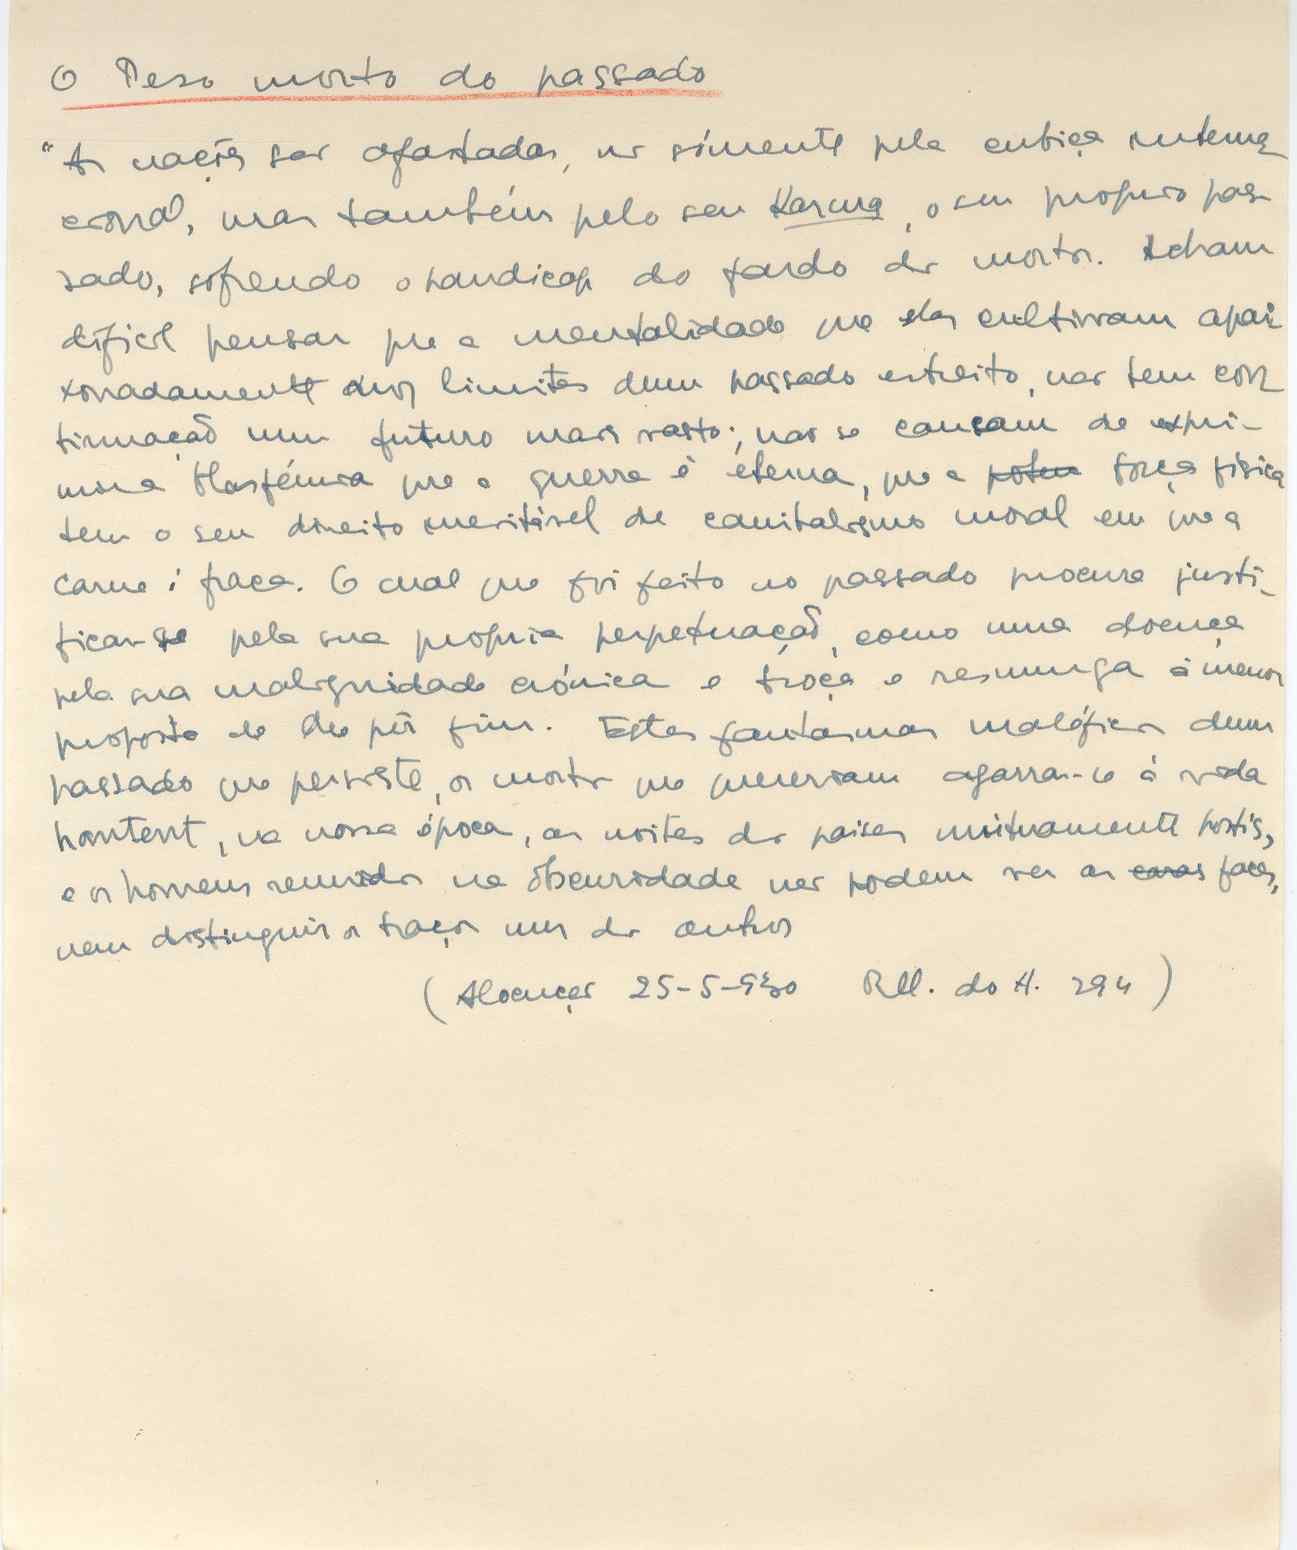 O Peso morto do passado
"As nações são afastadas, não sómente pela cubiça interna
cional, mas também pelo seu Karma, o seu proprio pas-
sado, sofrendo o handicap do fardo dos mortos. Acham
dificil pensar que a mentalidade que elas cultivam apai
xonadamente nos limites dum passado estreito, não tem con
tinuação num futuro mais vasto; não se cansam de expri-
mir a blasfémia que a guerra é eterna, que a força fisica
tem o seu direito inevitável de canibalismo moral em que a
carne é fraca. O mal que foi feito no passado procura justi-
ficar-se pela sua propria perpetuação, como uma doença
pela sua malignidade crónica e troça e resmunga á menor
proposta de lhe pôr fim. Estes fantasmas maléficos dum
passado que persiste, os mortos que quereriam agarrar-se á vida
hantent, na nossa época, as noites dos paises mutuamente hostis,
e os homens reunidos na obscuridade não podem ver as caras faces,
nem distinguir os traços uns dos outros
(Alocuções 25-5-930 Bll. do H. 294)